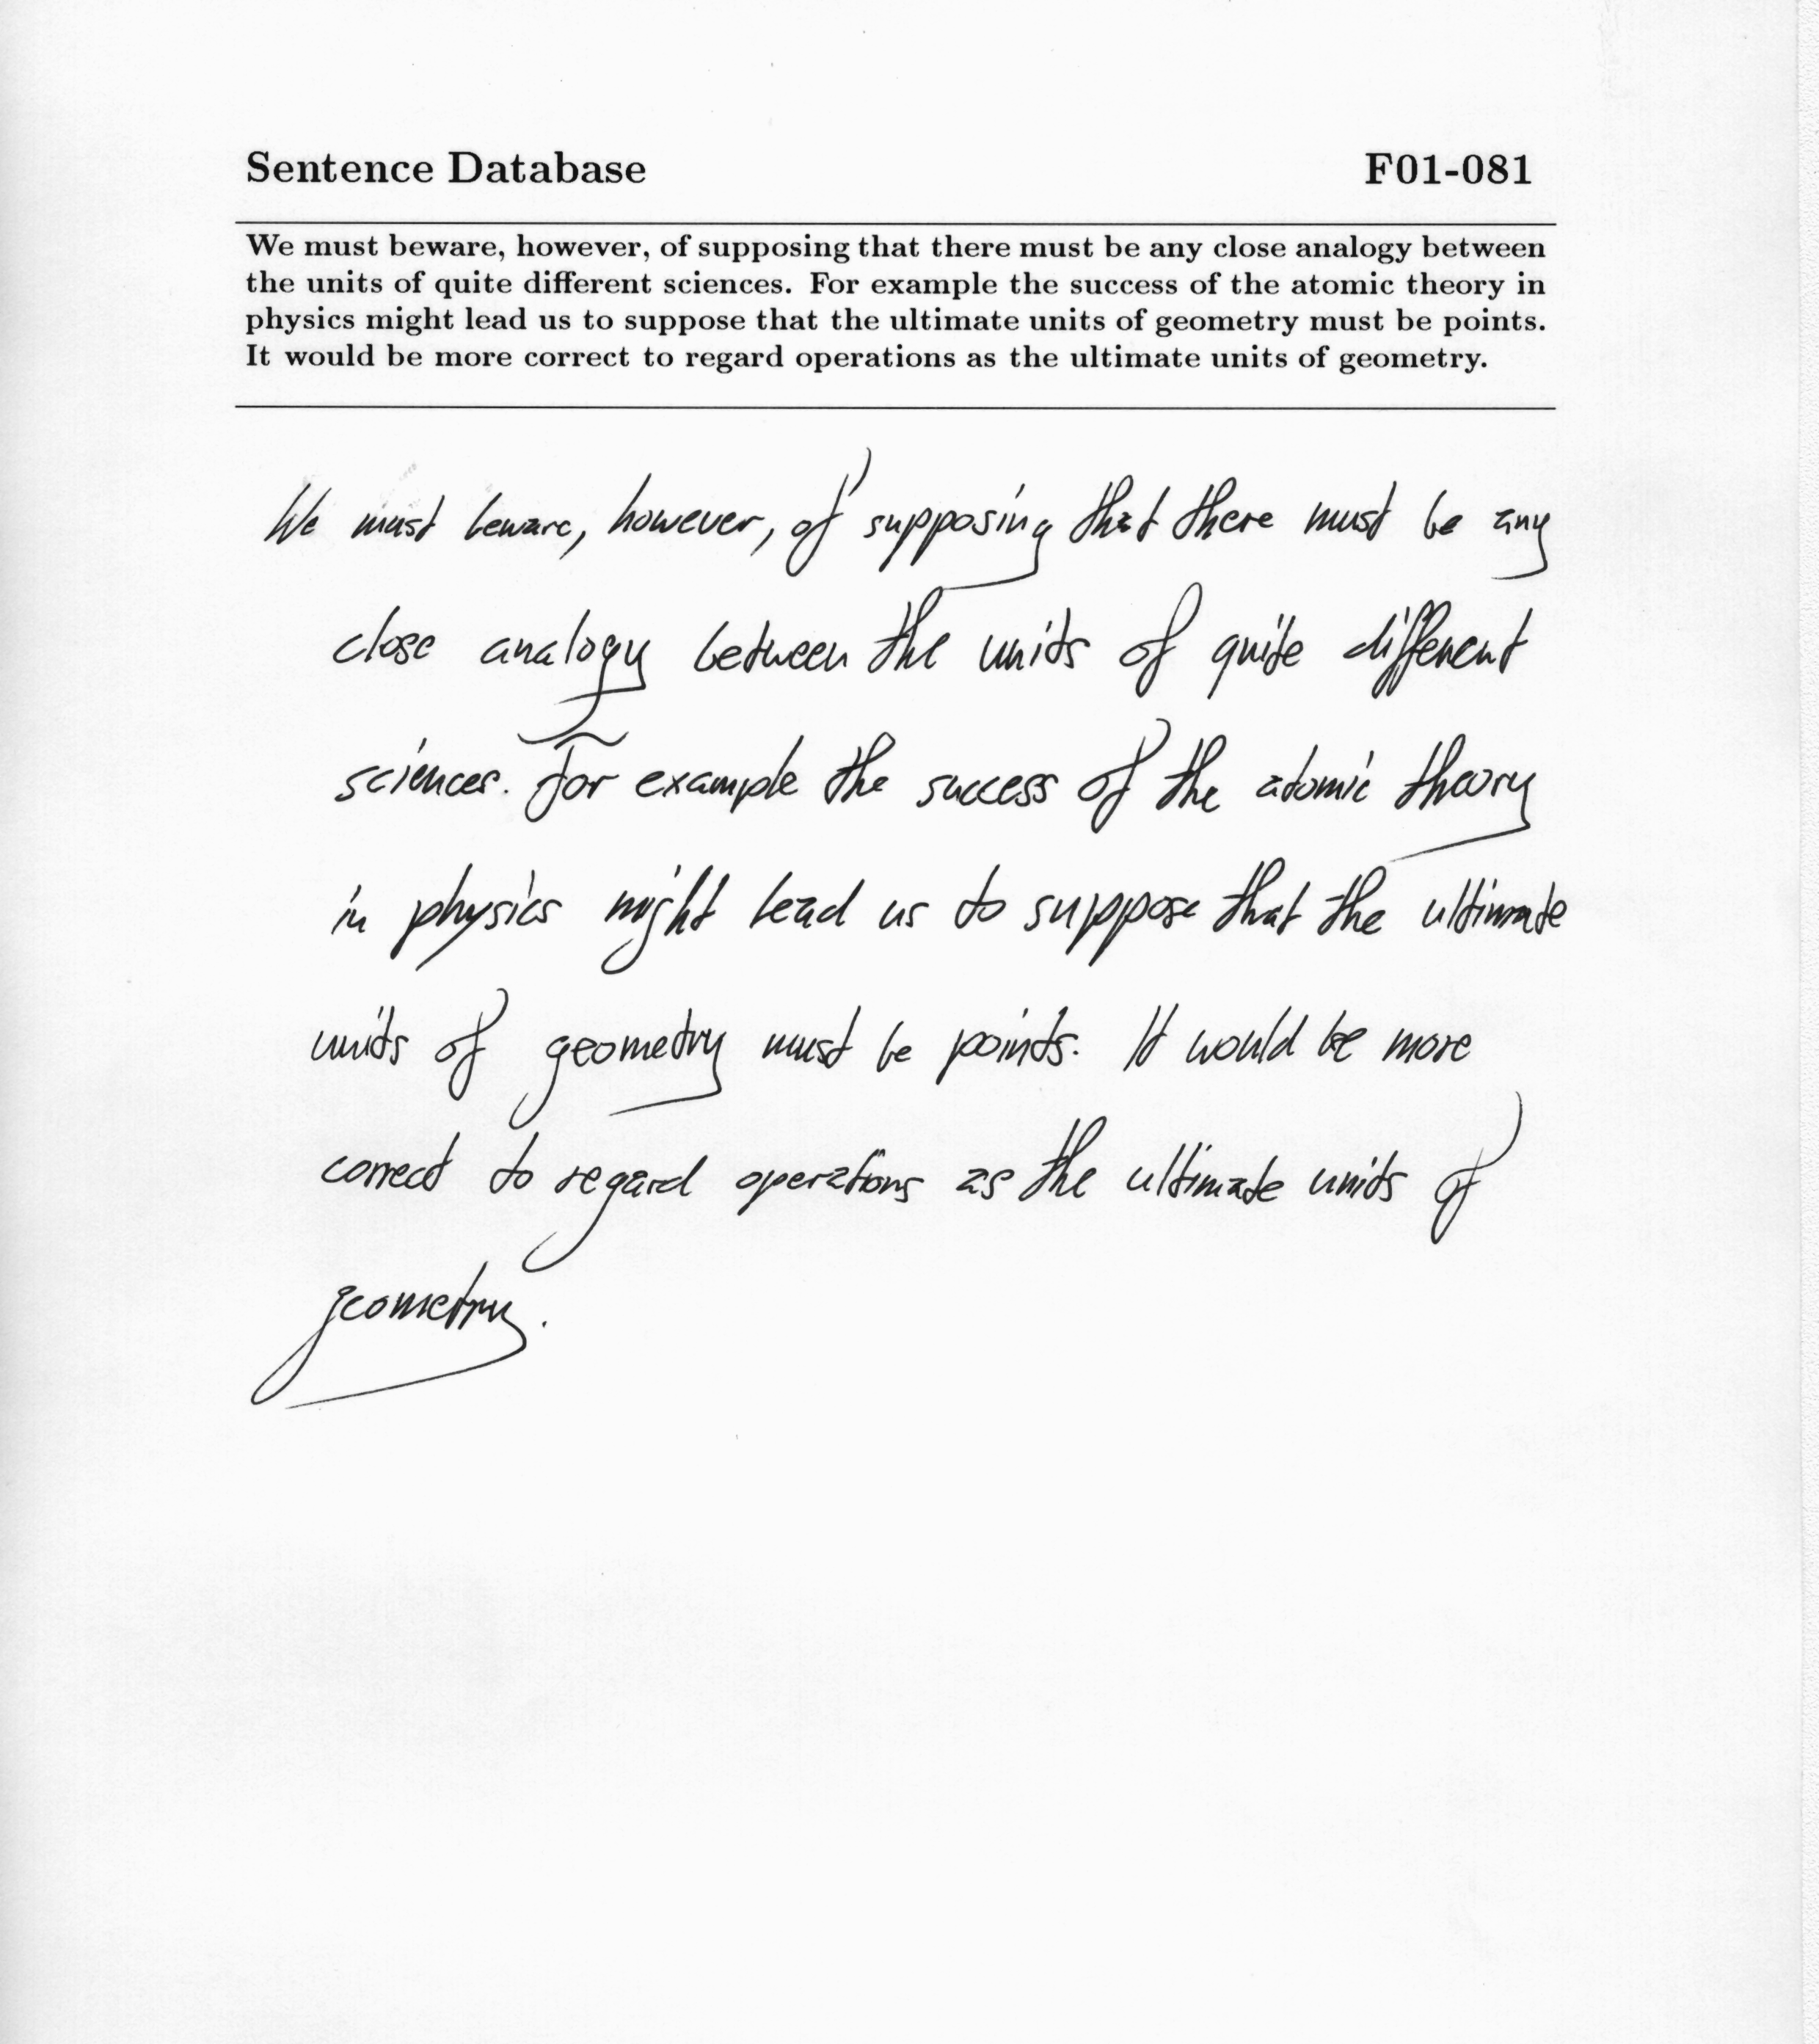 Sentence Database F01-081
We must beware, however, of supposing that there must be any close analogy between
the units of quite different sciences. For example the success of the atomic theory in
physics might lead us to suppose that the ultimate units of geometry must be points.
It would be more correct to regard operations as the ultimate units of geometry.
We must beware, however, of supposing that there must be any
close analogy between the units of quite different
sciences. For example the success of the atomic theory
in physics might lead us to suppose that the ultimate
units of geometry must be points. It would be more
correct to regard operations as the ultimate units of
geometry.